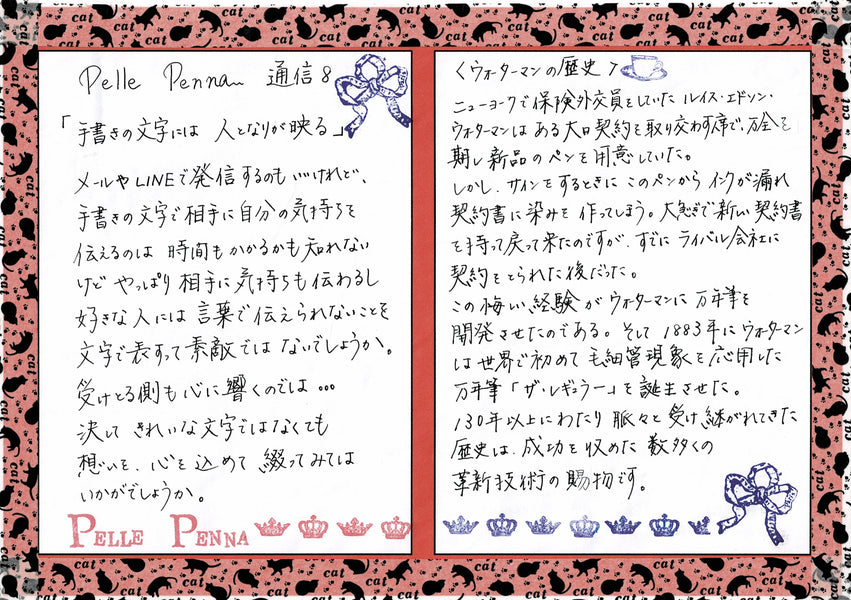 Pelle Penna 通信8
「手書きの文字には 人となりが映る」
メールやLINEで発信するのもいいけれど、
手書きの文字で相手に自分の気持ちを
伝えるのは 時間もかかるかも知れない
けど やっぱり 相手に気持ちも伝わるし
好きな人には 言葉で伝えられないことを
文字で表すって素敵では ないでしょうか。
受けとる側も心に響くのでは…
決して きれいな文字ではなくても
想いを、心を込めて 綴ってみては
いかがでしょうか。
PELLE PENNA
〈ウォーターマンの歴史〉
ニューヨークで保険外交員をしていた ルイス・エドソン・
ウォーターマンは ある大口契約を取り交わす席で、万全を
期し 新品のペンを用意していた。
しかし、サインをするときに このペンから インクが漏れ
契約書に染みを 作ってしまう。大急ぎで新しい契約書
を持って戻って来たのですが、すでに ライバル会社に
契約をとられた後だった。
この悔しい経験が ウォーターマンに 万年筆を
開発させたのである。そして 1883年に ウォーターマン
は世界で初めて 毛細管現象を応用した
万年筆「ザ・レギュラー」を誕生させた。
130年以上にわたり 脈々と受け継がれてきた
歴史は、成功を収めた 数多くの
革新技術の賜物です。
cat